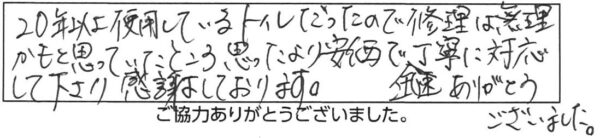 20年以上使用しているトイレだったので修理は無理
かもと思っていたところ思ったより安価で丁寧に対応
して下さり感謝しております。 ありがとう
ございました。
ご協力ありがとうございました。